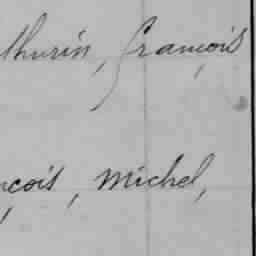 thurin, françois
nçois, michel,